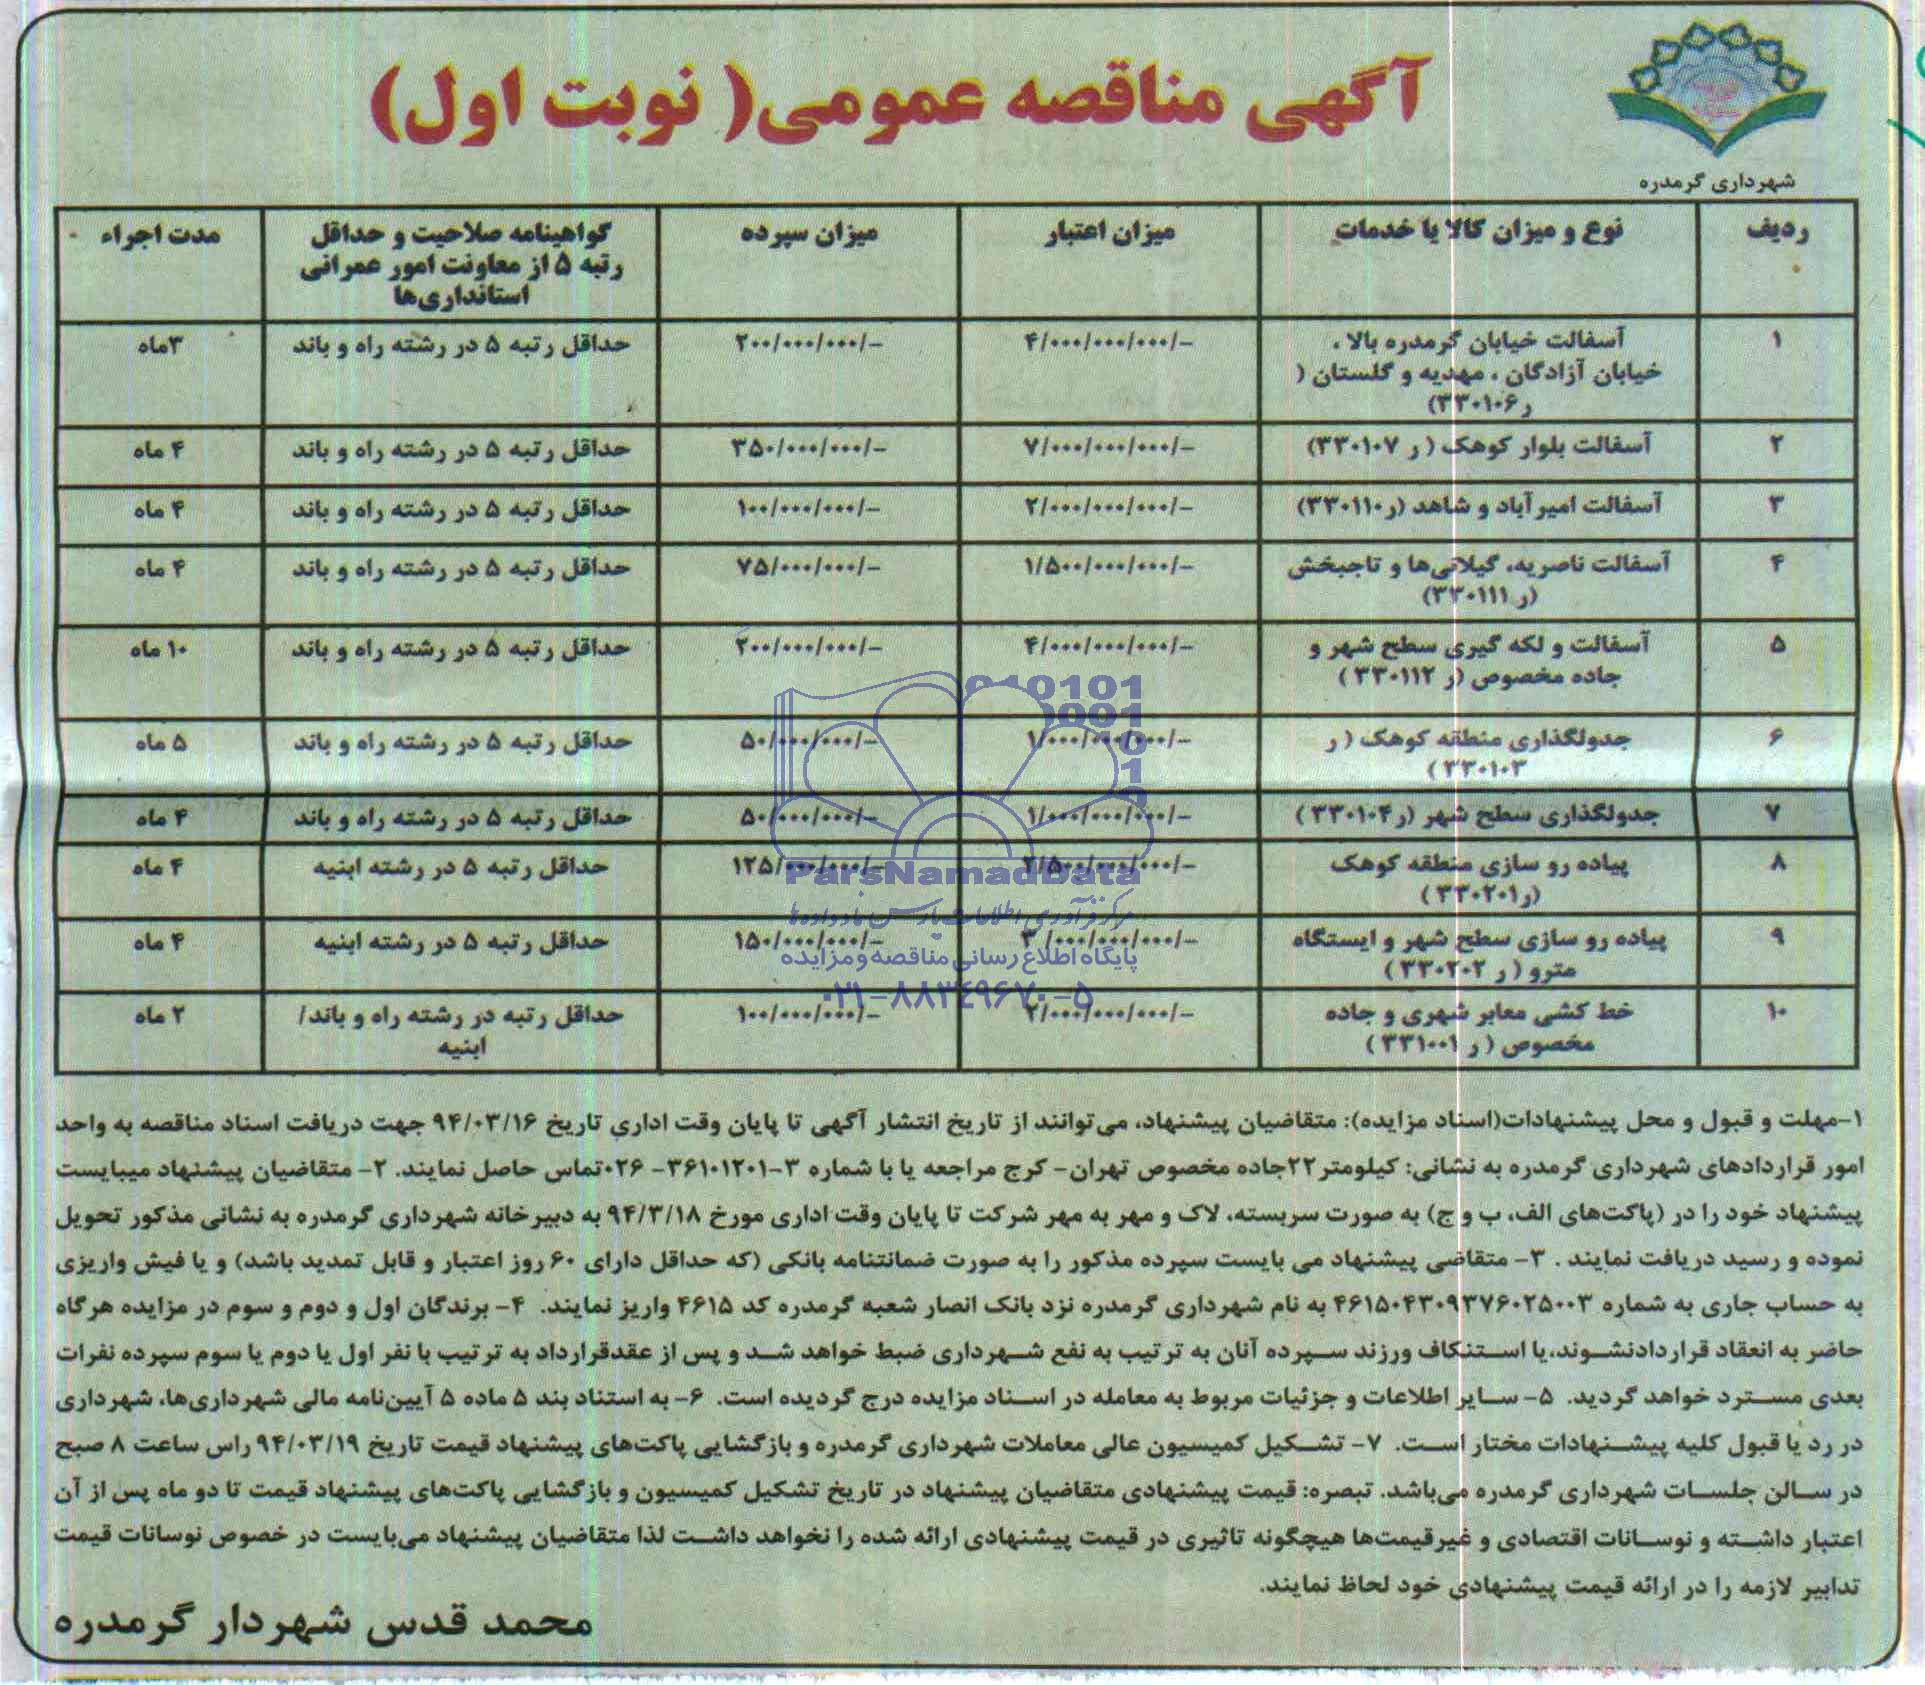 آگهی مناقصه عمومی( نوبت اول)
شهرداری گرمدره
ردیف	نوع و میزان کالا یا خدمات	میزان اعتبار	میزان سپرده	گواهینامه صلاحیت و حداقل رتبه ۵ از معاونت امور عمرانی استانداری‌ها	مدت اجراء
۱	آسفالت خیابان گرمدره بالا ، خیابان آزادگان ، مهدیه و گلستان ( ر۳۳۰۱۰۶)	۴/۰۰۰/۰۰۰/۰۰۰/-	۲۰۰/۰۰۰/۰۰۰/-	حداقل رتبه ۵ در رشته راه و باند	۳ماه
۲	آسفالت بلوار کوهک ( ر ۳۳۰۱۰۷)	۷/۰۰۰/۰۰۰/۰۰۰/-	۳۵۰/۰۰۰/۰۰۰/-	حداقل رتبه ۵ در رشته راه و باند	۴ ماه
۳	آسفالت امیرآباد و شاهد (ر۳۳۰۱۱۰)	۲/۰۰۰/۰۰۰/۰۰۰/-	۱۰۰/۰۰۰/۰۰۰/-	حداقل رتبه ۵ در رشته راه و باند	۴ ماه
۴	آسفالت ناصریه، گیلانی‌ها و تاجبخش (ر ۳۳۰۱۱۱)	۱/۵۰۰/۰۰۰/۰۰۰/-	۷۵/۰۰۰/۰۰۰/-	حداقل رتبه ۵ در رشته راه و باند	۴ ماه
۵	آسفالت و لکه گیری سطح شهر و جاده مخصوص (ر ۳۳۰۱۱۲ )	۴/۰۰۰/۰۰۰/۰۰۰/-	۲۰۰/۰۰۰/۰۰۰/-	حداقل رتبه ۵ در رشته راه و باند	۱۰ ماه
۶	جدولگذاری منطقه کوهک ( ر ۳۳۰۱۰۳ )	۱/۰۰۰/۰۰۰/۰۰۰/-	۵۰/۰۰۰/۰۰۰/-	حداقل رتبه ۵ در رشته راه و باند	۵ ماه
۷	جدولگذاری سطح شهر (ر۳۳۰۱۰۴ )	۱/۰۰۰/۰۰۰/۰۰۰/-	۵۰/۰۰۰/۰۰۰/-	حداقل رتبه ۵ در رشته راه و باند	۴ ماه
۸	پیاده رو سازی منطقه کوهک (ر۳۳۰۲۰۱ )	۲/۵۰۰/۰۰۰/۰۰۰/-	۱۲۵/۰۰۰/۰۰۰/-	حداقل رتبه ۵ در رشته ابنیه	۴ ماه
۹	پیاده رو سازی سطح شهر و ایستگاه مترو ( ر ۳۳۰۲۰۲ )	۳/۰۰۰/۰۰۰/۰۰۰/-	۱۵۰/۰۰۰/۰۰۰/-	حداقل رتبه ۵ در رشته ابنیه	۴ ماه
۱۰	خط کشی معابر شهری و جاده مخصوص ( ر ۳۳۱۰۰۱ )	۲/۰۰۰/۰۰۰/۰۰۰/-	۱۰۰/۰۰۰/۰۰۰/-	حداقل رتبه در رشته راه و باند/ ابنیه	۲ ماه
ParsNamadData
مرکز فرآوری اطلاعات پارس نماد داده‌ها
پایگاه اطلاع رسانی مناقصه و مزایده
۰۲۱-۸۸۳۴۹۶۷۰-۵
۱-مهلت و قبول و محل پیشنهادات(اسناد مزایده): متقاضیان پیشنهاد، می‌توانند از تاریخ انتشار آگهی تا پایان وقت اداری تاریخ ۹۴/۰۳/۱۶ جهت دریافت اسناد مناقصه به واحد
امور قراردادهای شهرداری گرمدره به نشانی: کیلومتر۲۲جاده مخصوص تهران- کرج مراجعه یا با شماره ۳-۳۶۱۰۱۲۰۱- ۰۲۶تماس حاصل نمایند. ۲- متقاضیان پیشنهاد میبایست
پیشنهاد خود را در (پاکت‌های الف، ب و ج) به صورت سربسته، لاک و مهر به مهر شرکت تا پایان وقت اداری مورخ ۹۴/۳/۱۸ به دبیرخانه شهرداری گرمدره به نشانی مذکور تحویل
نموده و رسید دریافت نمایند . ۳- متقاضی پیشنهاد می بایست سپرده مذکور را به صورت ضمانتنامه بانکی (که حداقل دارای ۶۰ روز اعتبار و قابل تمدید باشد) و یا فیش واریزی
به حساب جاری به شماره ۴۶۱۵۰۴۳۰۹۳۷۶۰۲۵۰۰۳ به نام شهرداری گرمدره نزد بانک انصار شعبه گرمدره کد ۴۶۱۵ واریز نمایند. ۴- برندگان اول و دوم و سوم در مزایده هرگاه
حاضر به انعقاد قراردادنشوند،یا استنکاف ورزند سپرده آنان به ترتیب به نفع شهرداری ضبط خواهد شد و پس از عقدقرارداد به ترتیب با نفر اول یا دوم یا سوم سپرده نفرات
بعدی مسترد خواهد گردید. ۵- سایر اطلاعات و جزئیات مربوط به معامله در اسناد مزایده درج گردیده است. ۶- به استناد بند ۵ ماده ۵ آیین‌نامه مالی شهرداری‌ها، شهرداری
در رد یا قبول کلیه پیشنهادات مختار است. ۷- تشکیل کمیسیون عالی معاملات شهرداری گرمدره و بازگشایی پاکت‌های پیشنهاد قیمت تاریخ ۹۴/۰۳/۱۹ راس ساعت ۸ صبح
در سالن جلسات شهرداری گرمدره می‌باشد. تبصره: قیمت پیشنهادی متقاضیان پیشنهاد در تاریخ تشکیل کمیسیون و بازگشایی پاکت‌های پیشنهاد قیمت تا دو ماه پس از آن
اعتبار داشته و نوسانات اقتصادی و غیرقیمت‌ها هیچگونه تاثیری در قیمت پیشنهادی ارائه شده را نخواهد داشت لذا متقاضیان پیشنهاد می‌بایست در خصوص نوسانات قیمت
تدابیر لازمه را در ارائه قیمت پیشنهادی خود لحاظ نمایند.
محمد قدس شهردار گرمدره